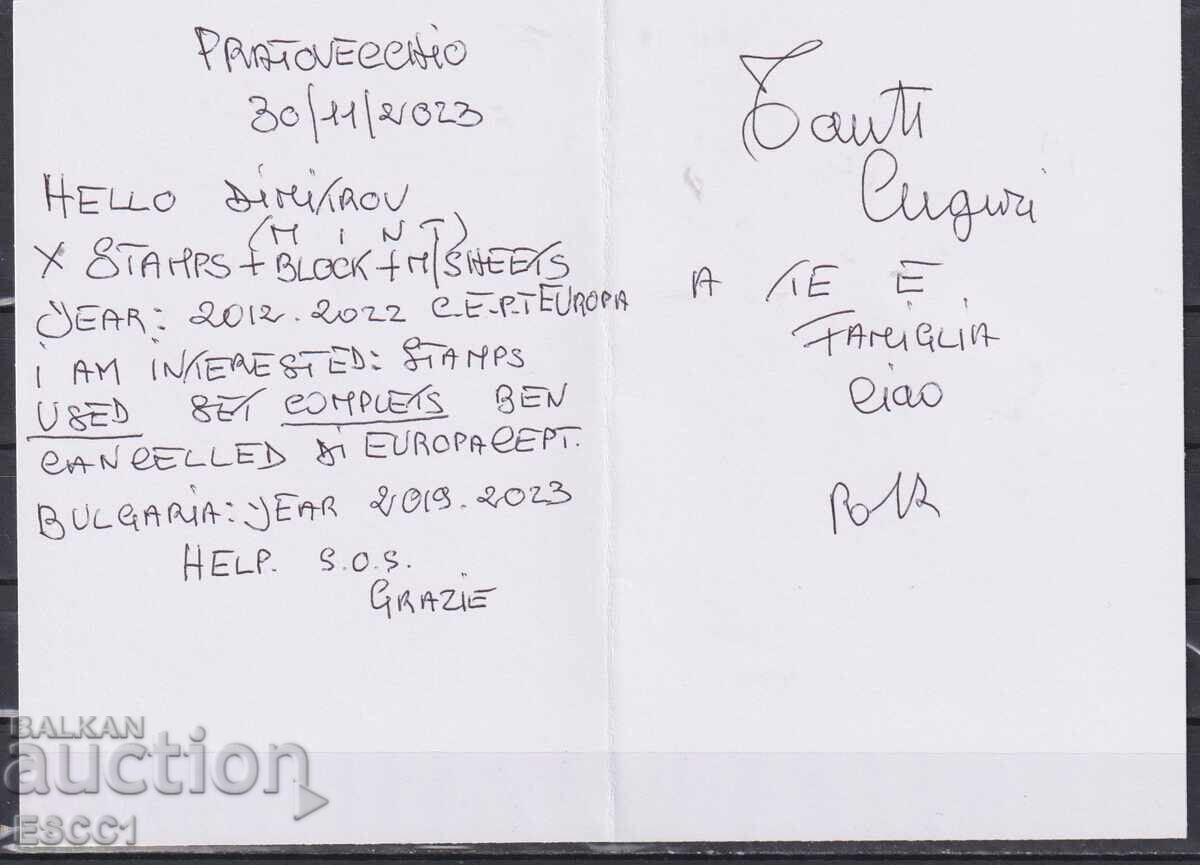 PRATOVECCHIO
30/11/2023
HELLO DIMITROV
(MINT)
X STAMPS + BLOCK + M/SHEETS
YEAR: 2012. 2022 C.E.P.T EUROPA
I AM INTERESTED: STAMPS
USED SET COMPLETS BEN
CANCELLED DI EUROPA CEPT.
BULGARIA: YEAR 2019. 2023
HELP. S.O.S.
GRAZIE
Tanti
Auguri
A TE E
FAMIGLIA
Ciao
BALKAN
auction
ESCC1